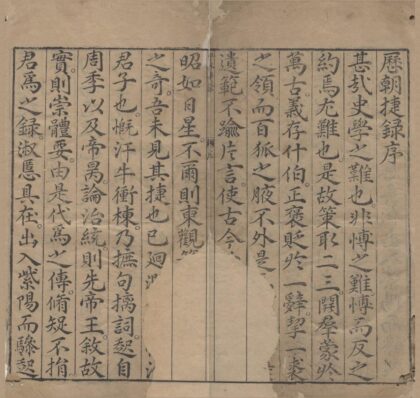 歷朝捷錄序
甚哉史學之難也非博之難博而反之
約焉尤難也是故策取二三開羣蒙於
萬古義存什伯正褒貶於一辭挈一裘
之領而百狐之腋不外是
遺範不踰片言使古今
昭如日星不爾則東觀
之奇吾未見其捷也已廻
君子也慨汗牛衝棟乃撫句摛詞起自
周季以及帝昺論治統則先帝王敘故
實則崇體要由是代為之傳脩短不
君為之錄淑慝具在出入紫陽而驂起